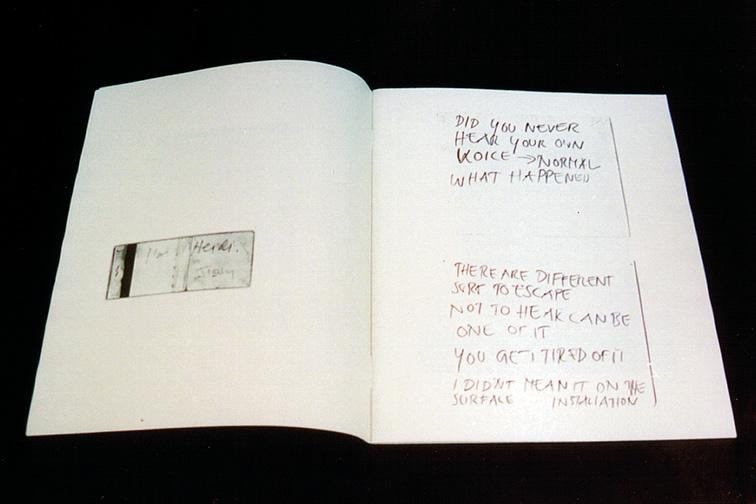 Heidi.
DID YOU NEVER
HEAR YOUR OWN
VOICE → NORMAL
WHAT HAPPENED
THERE ARE DIFFERENT
SORT TO ESCAPE
NOT TO HEAR CAN BE
ONE OF IT
YOU GET TIRED OF IT
I DIDN'T MEAN IT ON THE
SURFACE INSTALLATION